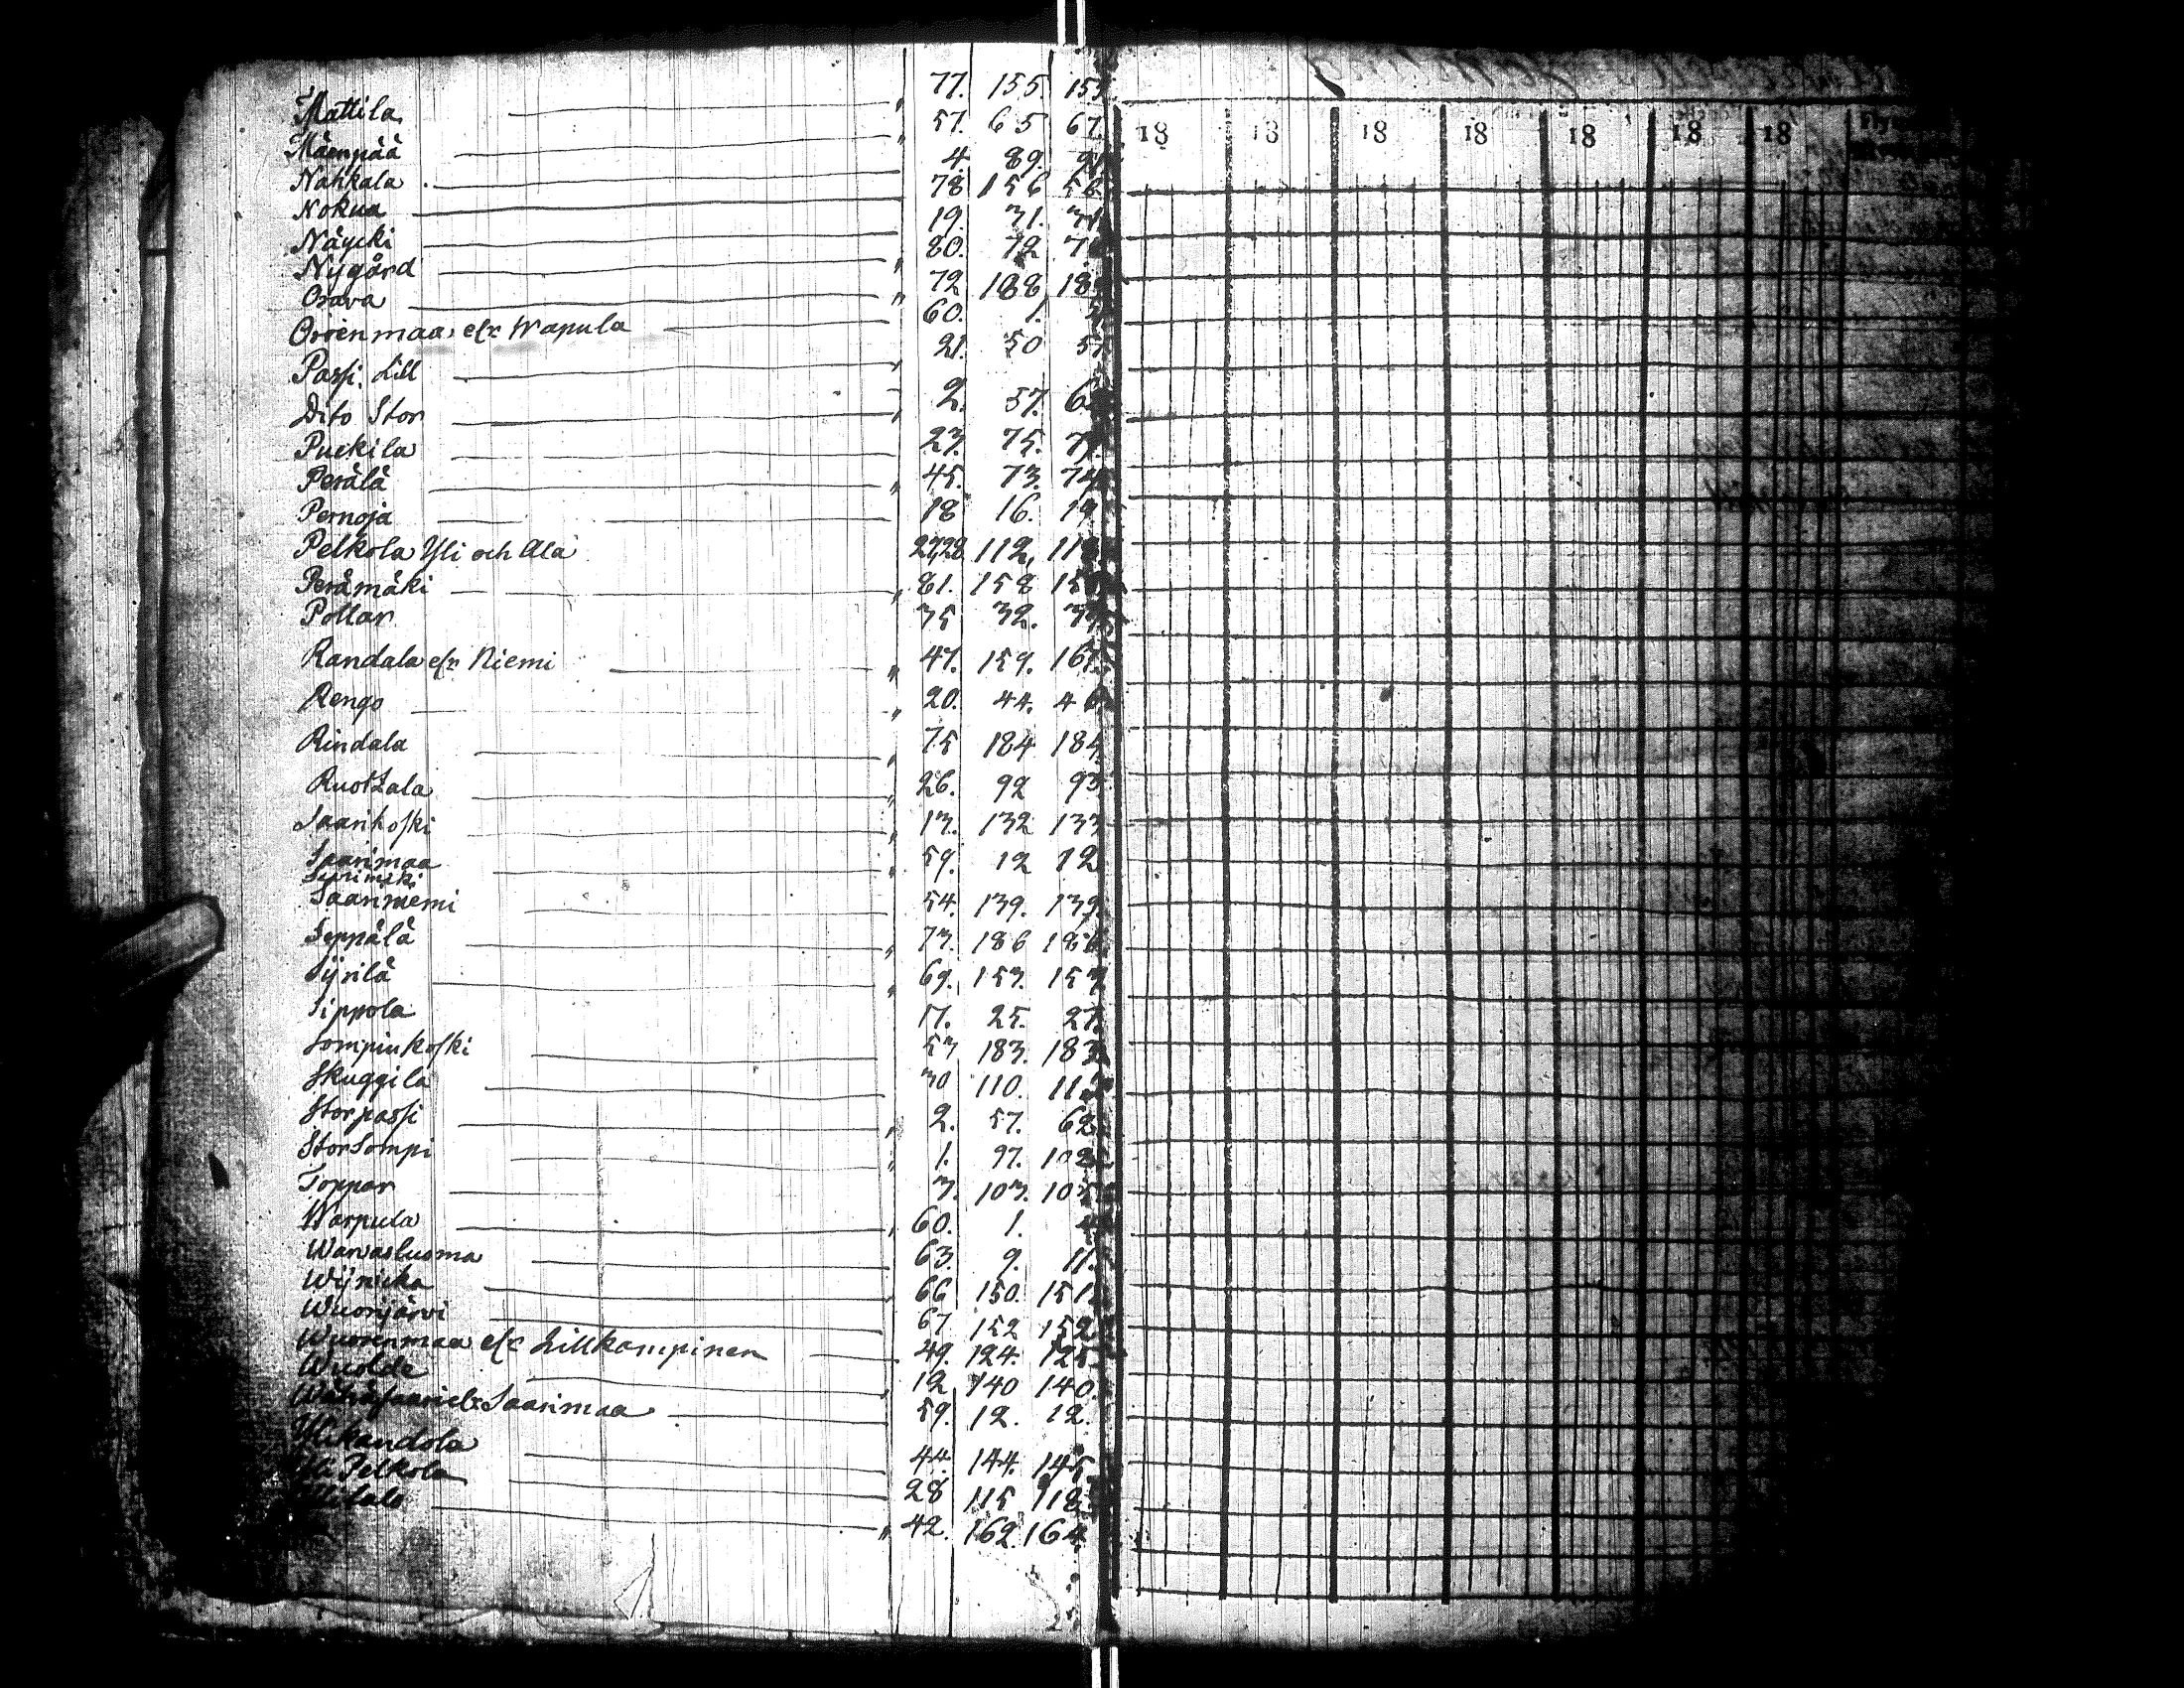 Mattila " 77. 155. 157
Mäenpää " 57. 65 67.
Nahkala 4. 89. 91
Nokua 78 156 56
Näycki 19. 31. 31
Nygård " 80. 72
Orava " 72 188 18
Orrenmaa elr Wapula 60. 1.
Passi Lill " 21. 50 5
Dito Stor " 2. 57. 6
Puckila 23. 75. 77
Perälä " 45. 73. 74
Pernoja 18 16. 19
Pelkola Yli och Ala 27,28 112, 11
Perämäki " 81. 158 15
Pottar 35 32. 3
Randala elr Niemi " 47. 159. 161
Rengo " 20. 44. 46
Rindala " 75 184 184
Ruotzala " 26. 92 93
Saarikoski " 13. 132 133
Saarimaa " 59. 12 12
Saariniemi 54. 139. 139.
Seppälä " 73. 186 186
Syrilä " 69. 153. 153
Sippola 17. 25. 27.
Sompinkoski 53 183. 183
Skuggila 30 110. 11
Storpassi " 2. 57. 62
StorSompi " 1. 97. 102
Toppar 3. 103. 105
Warpula " 60. 1. 4
Warvasluoma 63. 9. 11.
Wijnicka 66 150. 151
Wuorijärvi 67 152 152
Wuorenmaa elr Lillkampinen 49. 124. 125
Wuolde 12 140 140.
Saarimaa 59. 12. 12.
Ylikandola 44. 144. 145
Yli Pelkola 28 115 118
" 42. 162 164
18 18 18 18 18 18 18